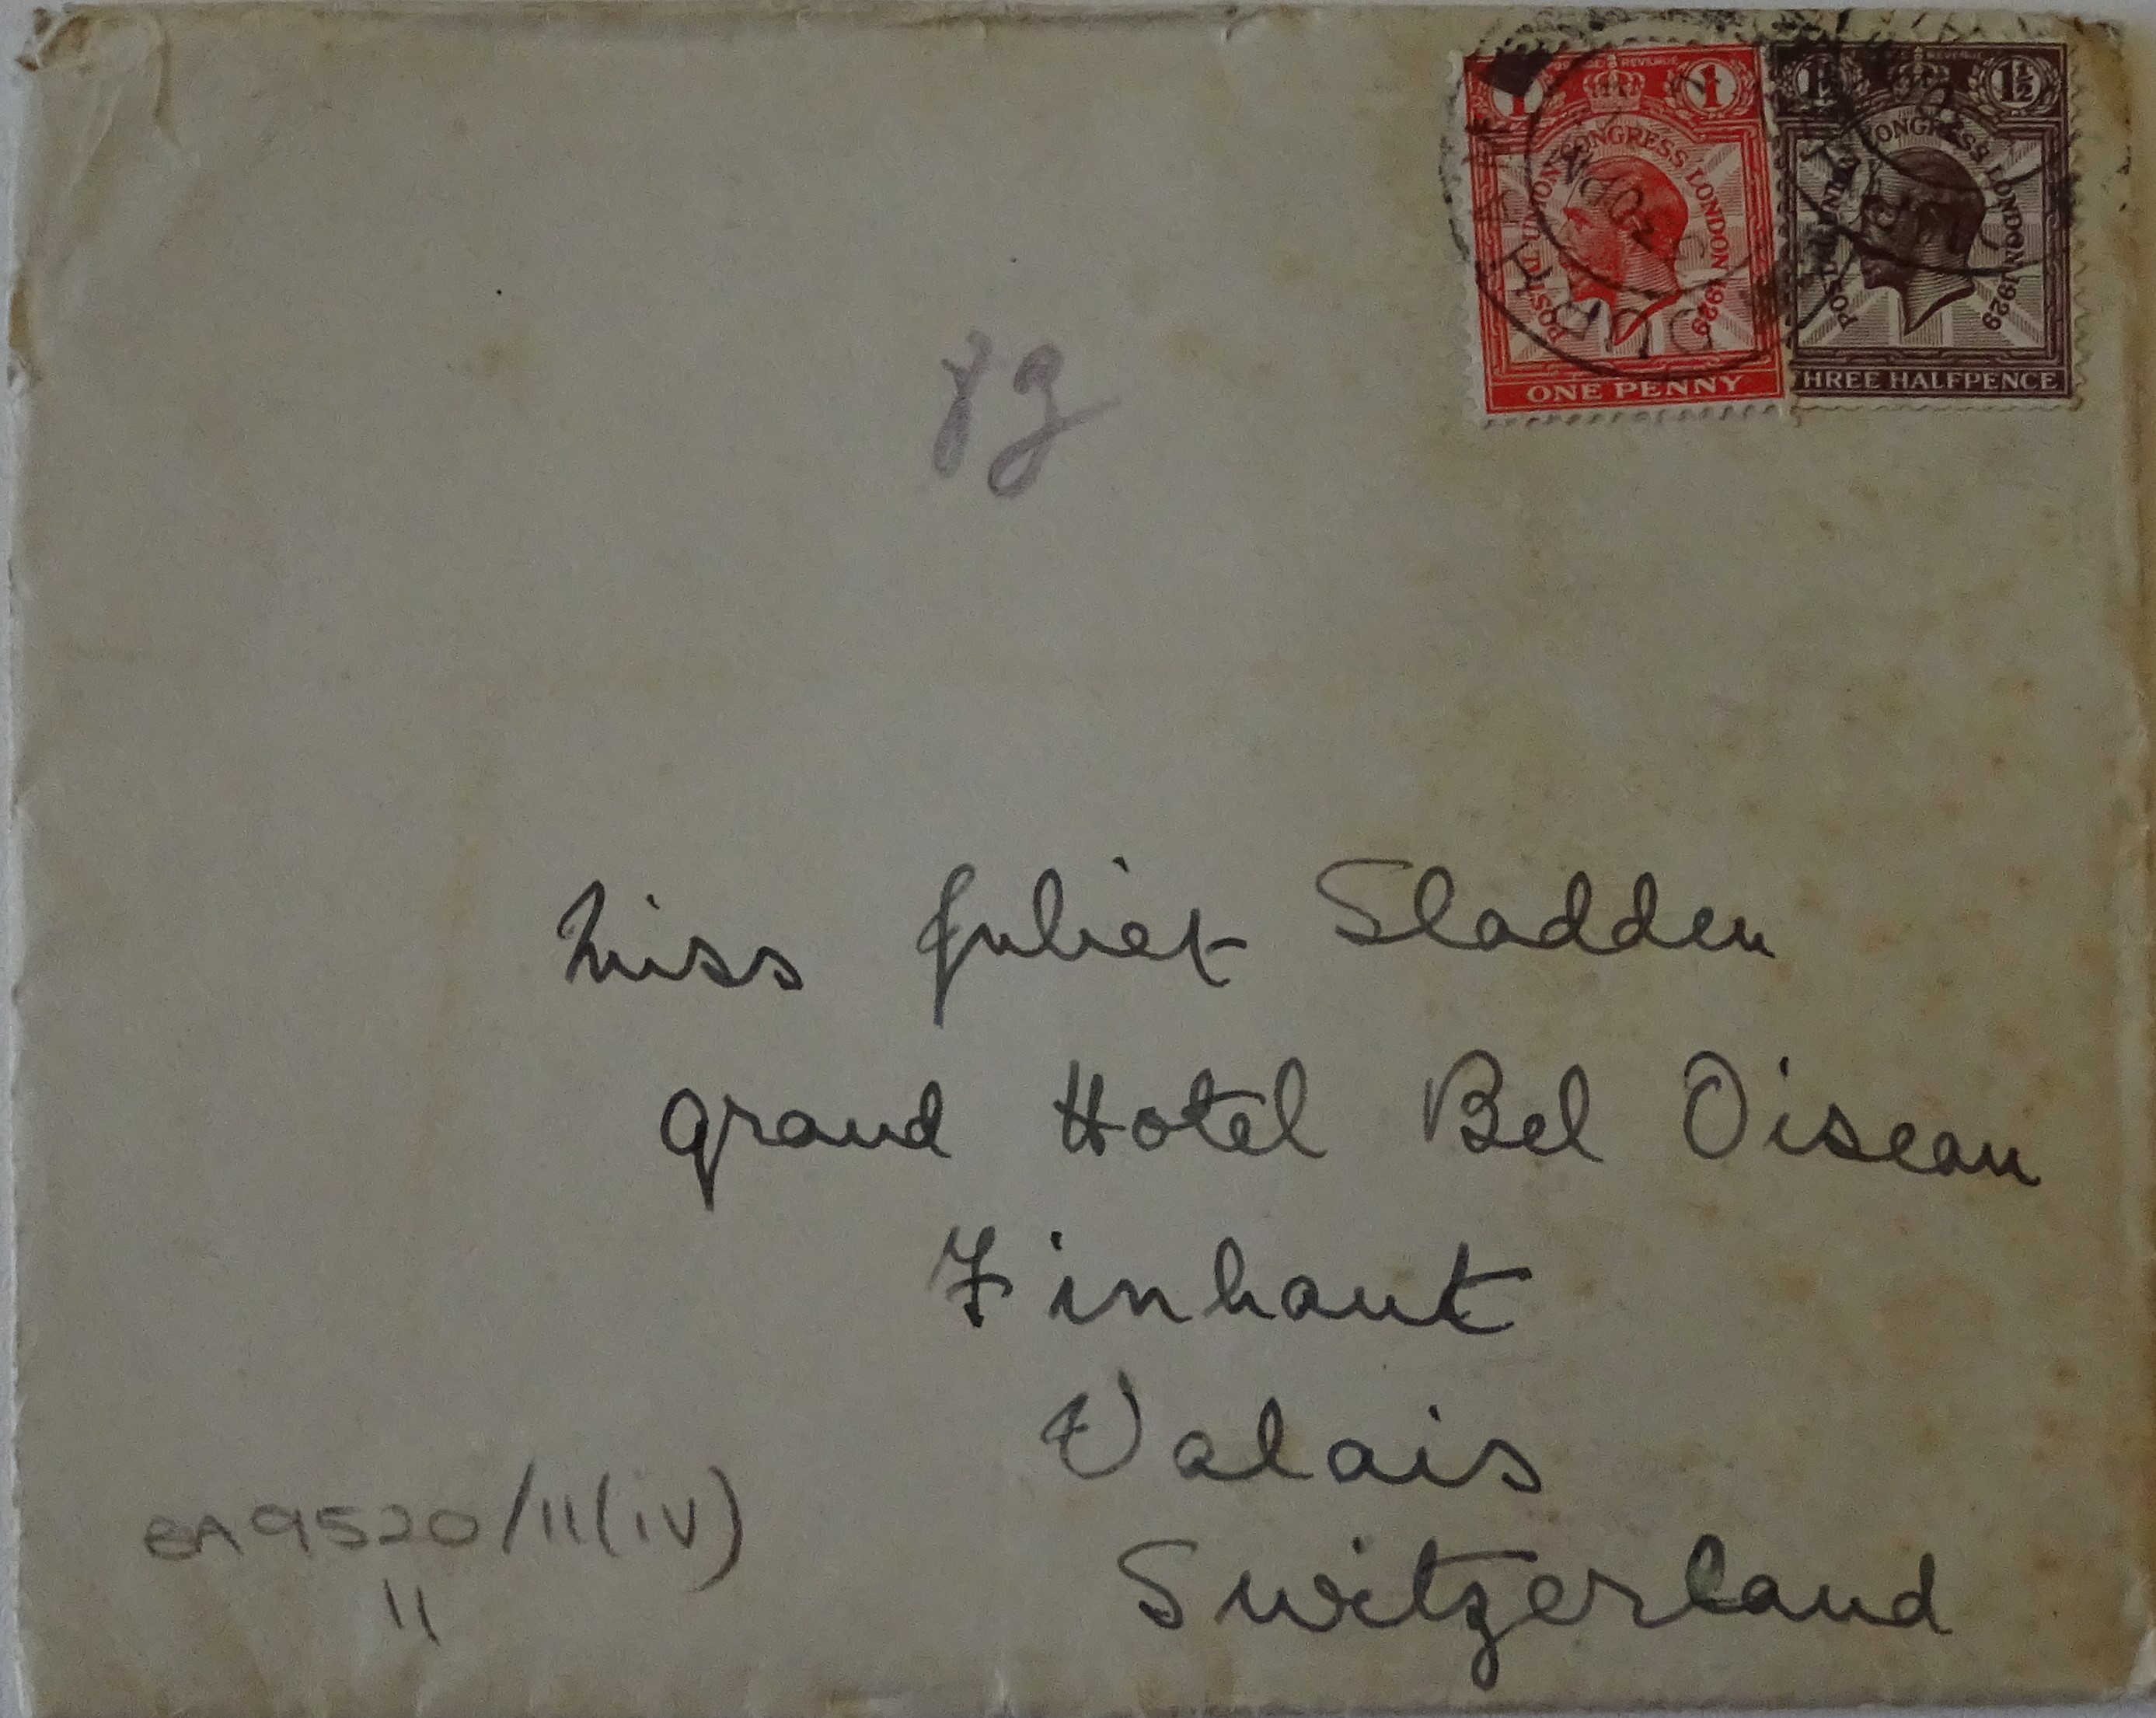 1 1
POSTAL UNION CONGRESS LONDON 1929
ONE PENNY
1½ 1½
POSTAL UNION CONGRESS LONDON 1929
THREE HALFPENCE
Miss Juliet Sladden
Grand Hotel Bel Oiseau
Finhaut
Valais
Switzerland
EA9520/11(iv)
11